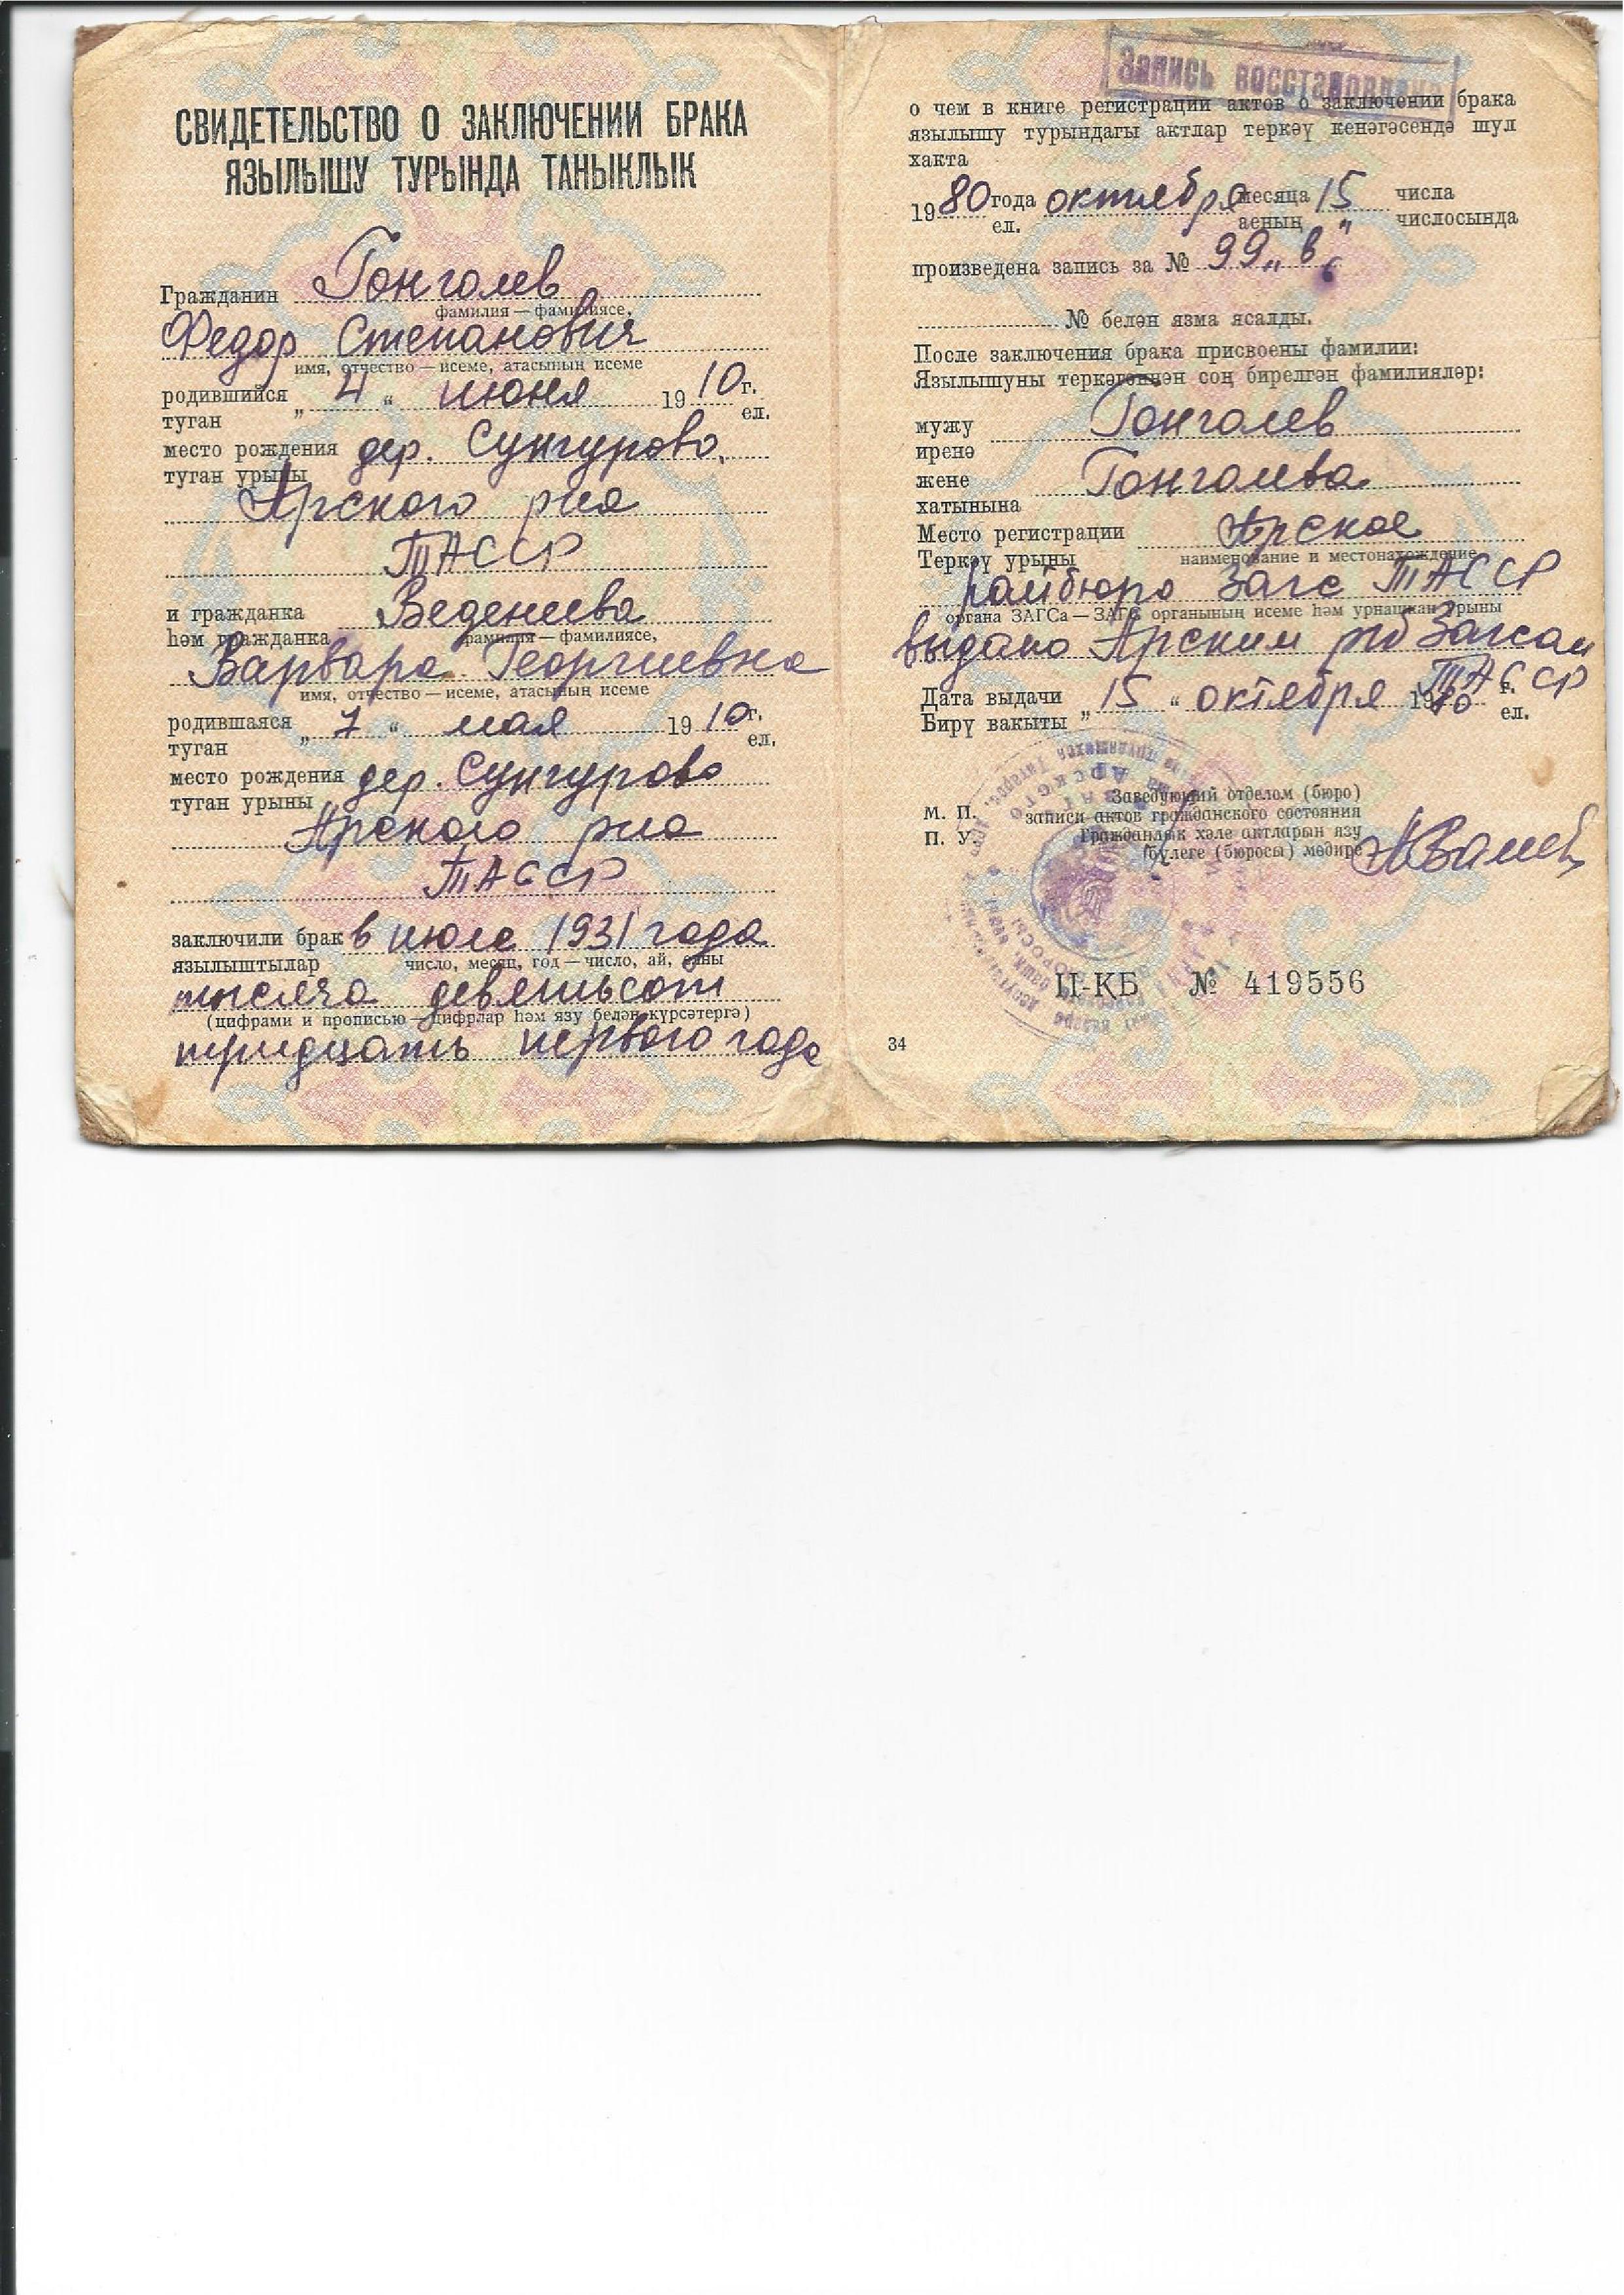 СВИДЕТЕЛЬСТВО О ЗАКЛЮЧЕНИИ БРАКА
ЯЗЫЛЫШУ ТУРЫНДА ТАНЫКЛЫК
Гражданин Гонголев
фамилия — фамилиясе,
Федор Степанович
имя, отчество — исеме, атасының исеме
родившийся „ 4 “ июня 1910 г.
туган ел.
место рождения дер. Сунгурово,
туган урыны
Арского р-на
ТАССР
и гражданка Веденеева
һәм гражданка фамилия — фамилиясе,
Варвара Георгиевна
имя, отчество — исеме, атасының исеме
родившаяся „ 7 “ мая 1910 г.
туган ел.
место рождения дер. Сунгурово
туган урыны
Арского р-на
ТАССР
заключили брак в июле 1931 года
язылыштылар число, месяц, год — число, ай, елны
тысяча девятьсот
(цифрами и прописью — цифрлар һәм язу белән күрсәтергә)
тридцать первого года
Запись восстановлена
о чем в книге регистрации актов о заключении брака
язылышу турындагы актлар теркәү кенәгәсендә шул
хакта
1980 года октября месяца 15 числа
ел. аеның числосында
произведена запись за № 99 „в“
№ белән язма ясалды.
После заключения брака присвоены фамилии:
Язылышуны теркәгәннән соң бирелгән фамилияләр:
мужу Гонголев
иренә
жене Гонголева
хатынына
Место регистрации Арское
Теркәү урыны наименование и местонахождение
райбюро Загс ТАССР
органа ЗАГСа — ЗАГС органының исеме һәм урнашкан урыны
выдано Арским р/б Загсам
ТАССР
Дата выдачи „ 15 “ октября 1980 г.
Бирү вакыты ел.
Заведующий отделом (бюро)
М. П. записи актов гражданского состояния
П. У. Гражданлык хәле актларын язу
бүлеге (бюросы) мөдире
II-КБ № 419556
34